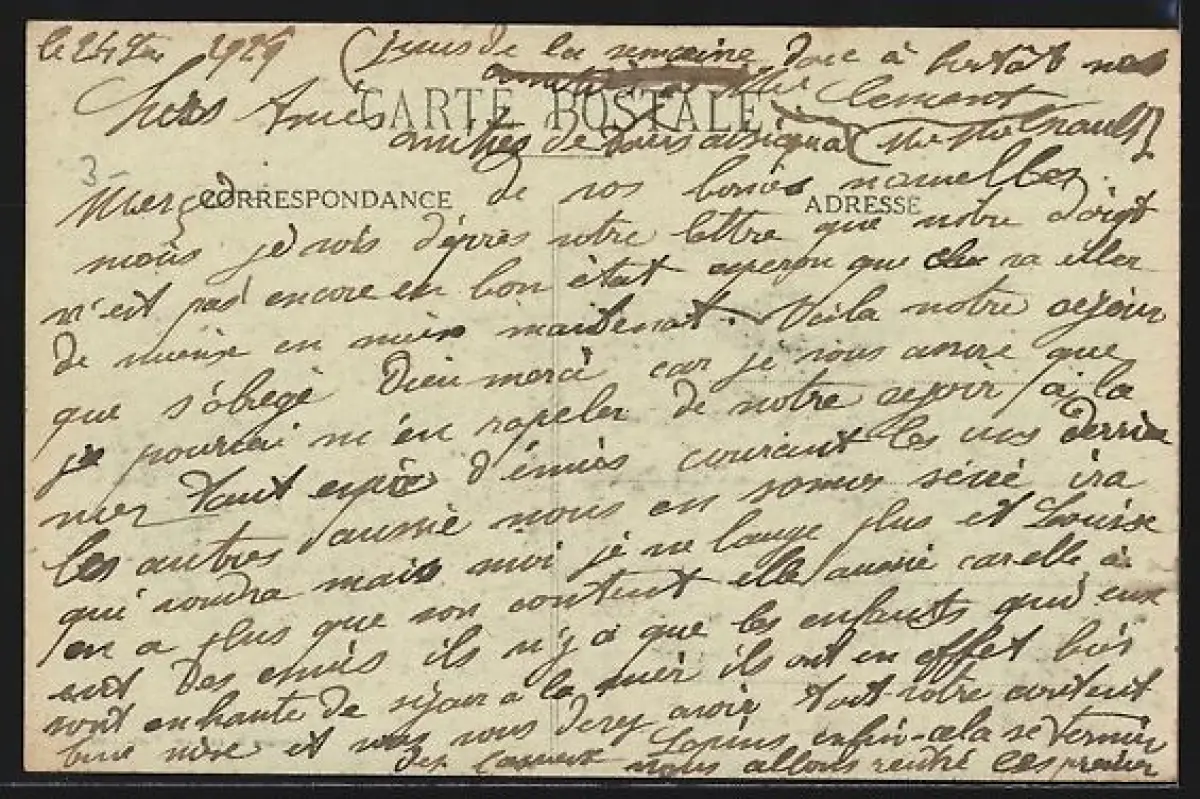 le 24 1929 (jours de la semaine donc à bientôt nos
amitiés a Clement
Chers Amies CARTE POSTALE
amitiés de tous
3-
CORRESPONDANCE ADRESSE
Merci de vos bonnes nouvelles
mais je vois d'épres votre lettre que votre doigt
n'est pas encore en bon état esperon que cela va aller
de mieux en mieux maintenat. Voila notre séjour
que s'obrégé Dieu merci car je vous assure que
je pourrai m'en rapeler de notre sejoir à la
mer tant d'énnies courant les uns derrie
les autres aussie nous en somes
qui voudra mais moi je ne bouge plus et Louise
en a plus que son content elle aussie car elle a
eut des ennies ils n'y a que les enfants qui eux
sont enhanté de séjour a la mer ils ont en effet bien
bone mine et vous vous devez avoir tout votre content
des Lapins enfin cela se termine
nous allons rentré les premier